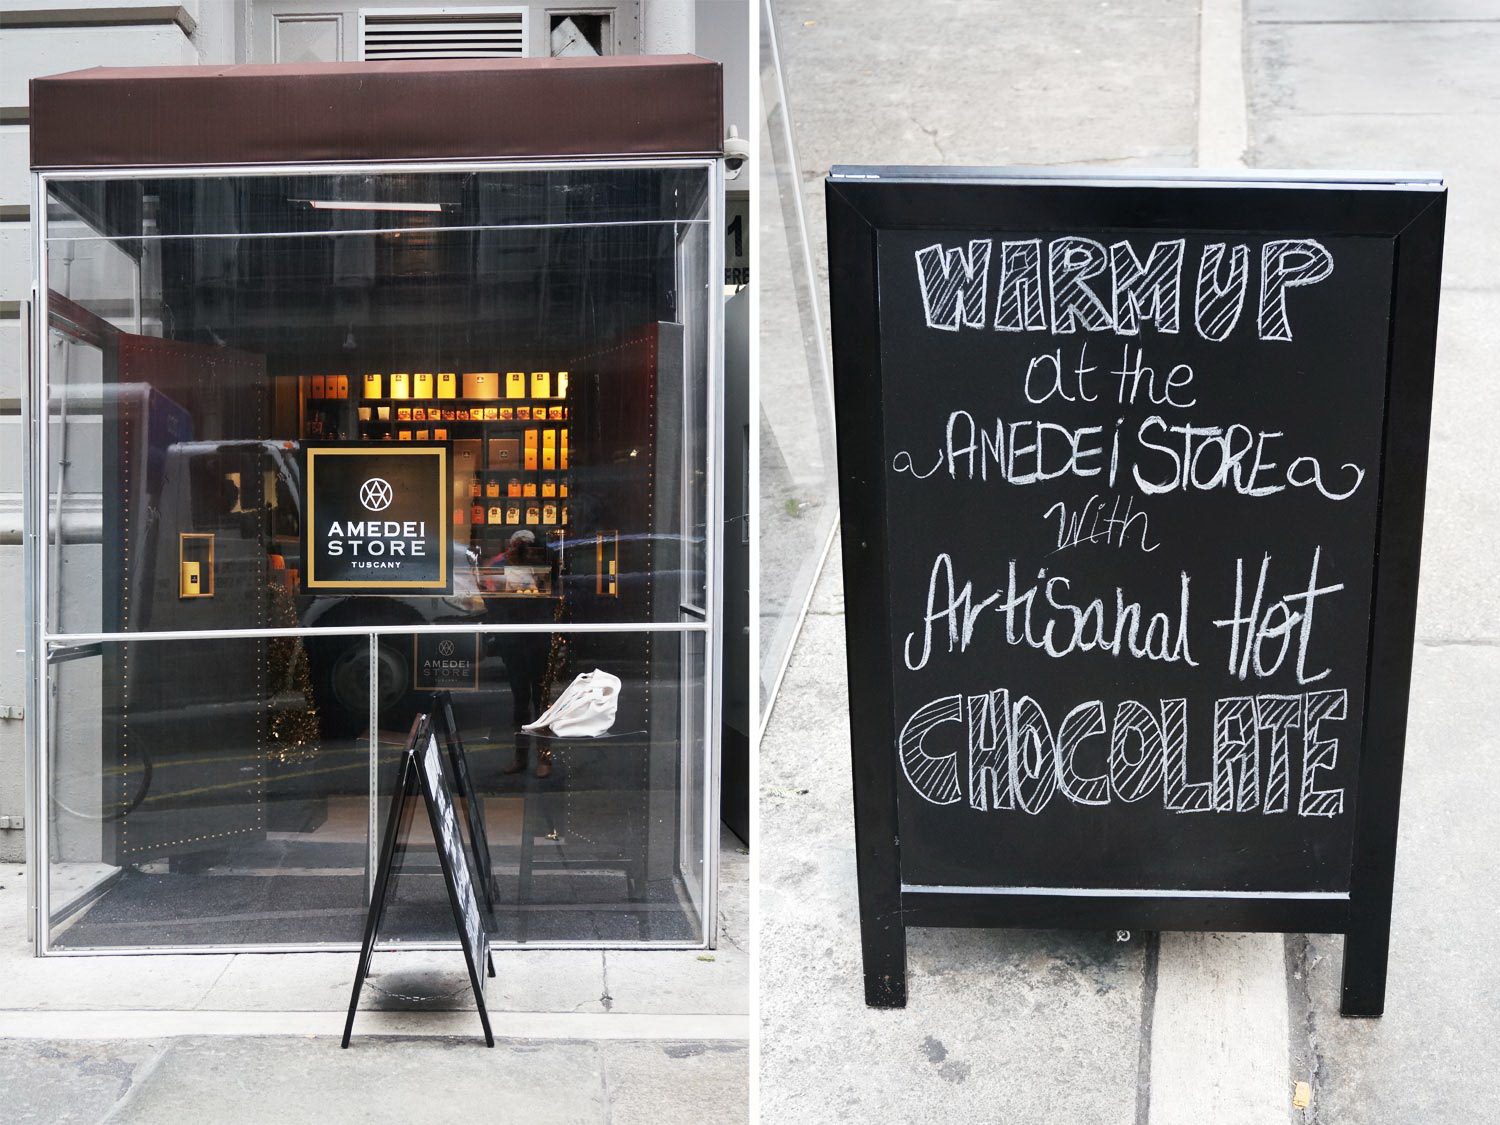 AMEDEI
STORE
TUSCANY
AMEDEI
STORE
TUSCANY
1
FRE
WARM UP
at the
AMEDEi STORE
with
Artisanal Hot
CHOCOLATE